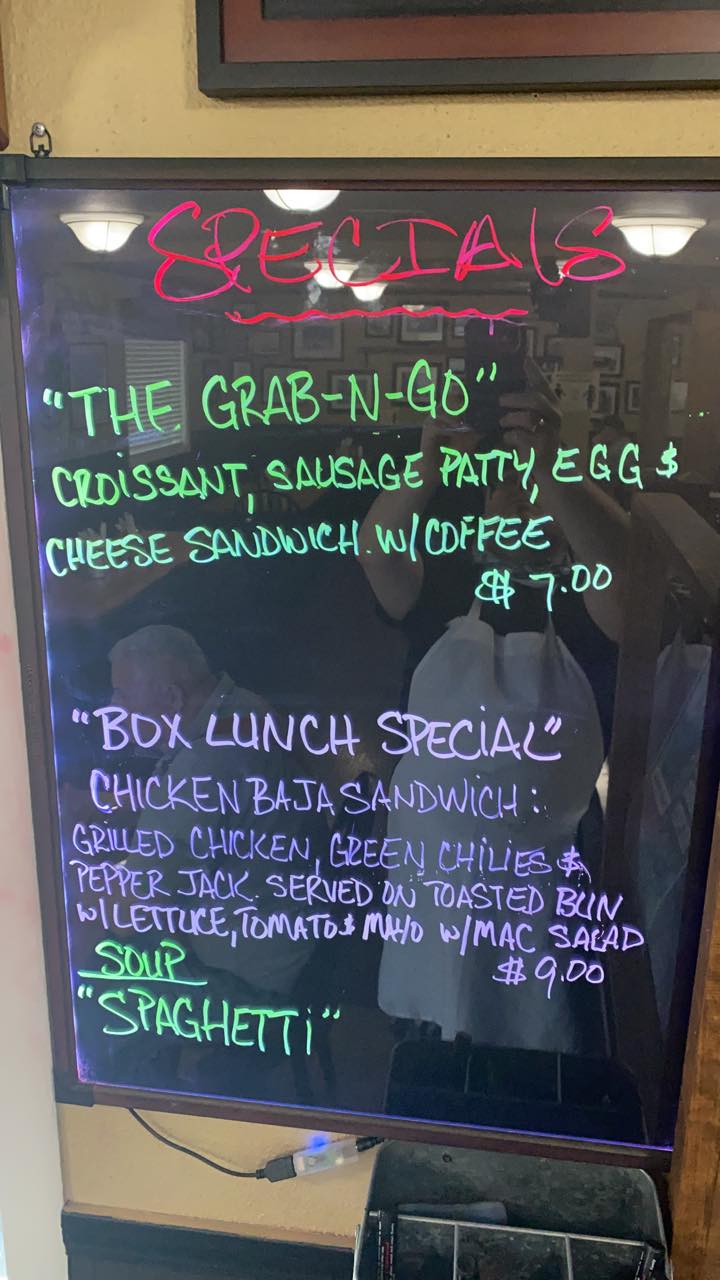 SPECIALS
"THE GRAB-N-GO"
CROISSANT, SAUSAGE PATTY, EGG &
CHEESE SANDWICH. W/COFFEE
$ 7.00
"BOX LUNCH SPECIAL"
CHICKEN BAJA SANDWICH:
GRILLED CHICKEN, GREEN CHILIES &
PEPPER JACK. SERVED ON TOASTED BUN
W/LETTUCE, TOMATO & MAYO W/MAC SALAD
$ 9.00
SOUP
"SPAGHETTI"